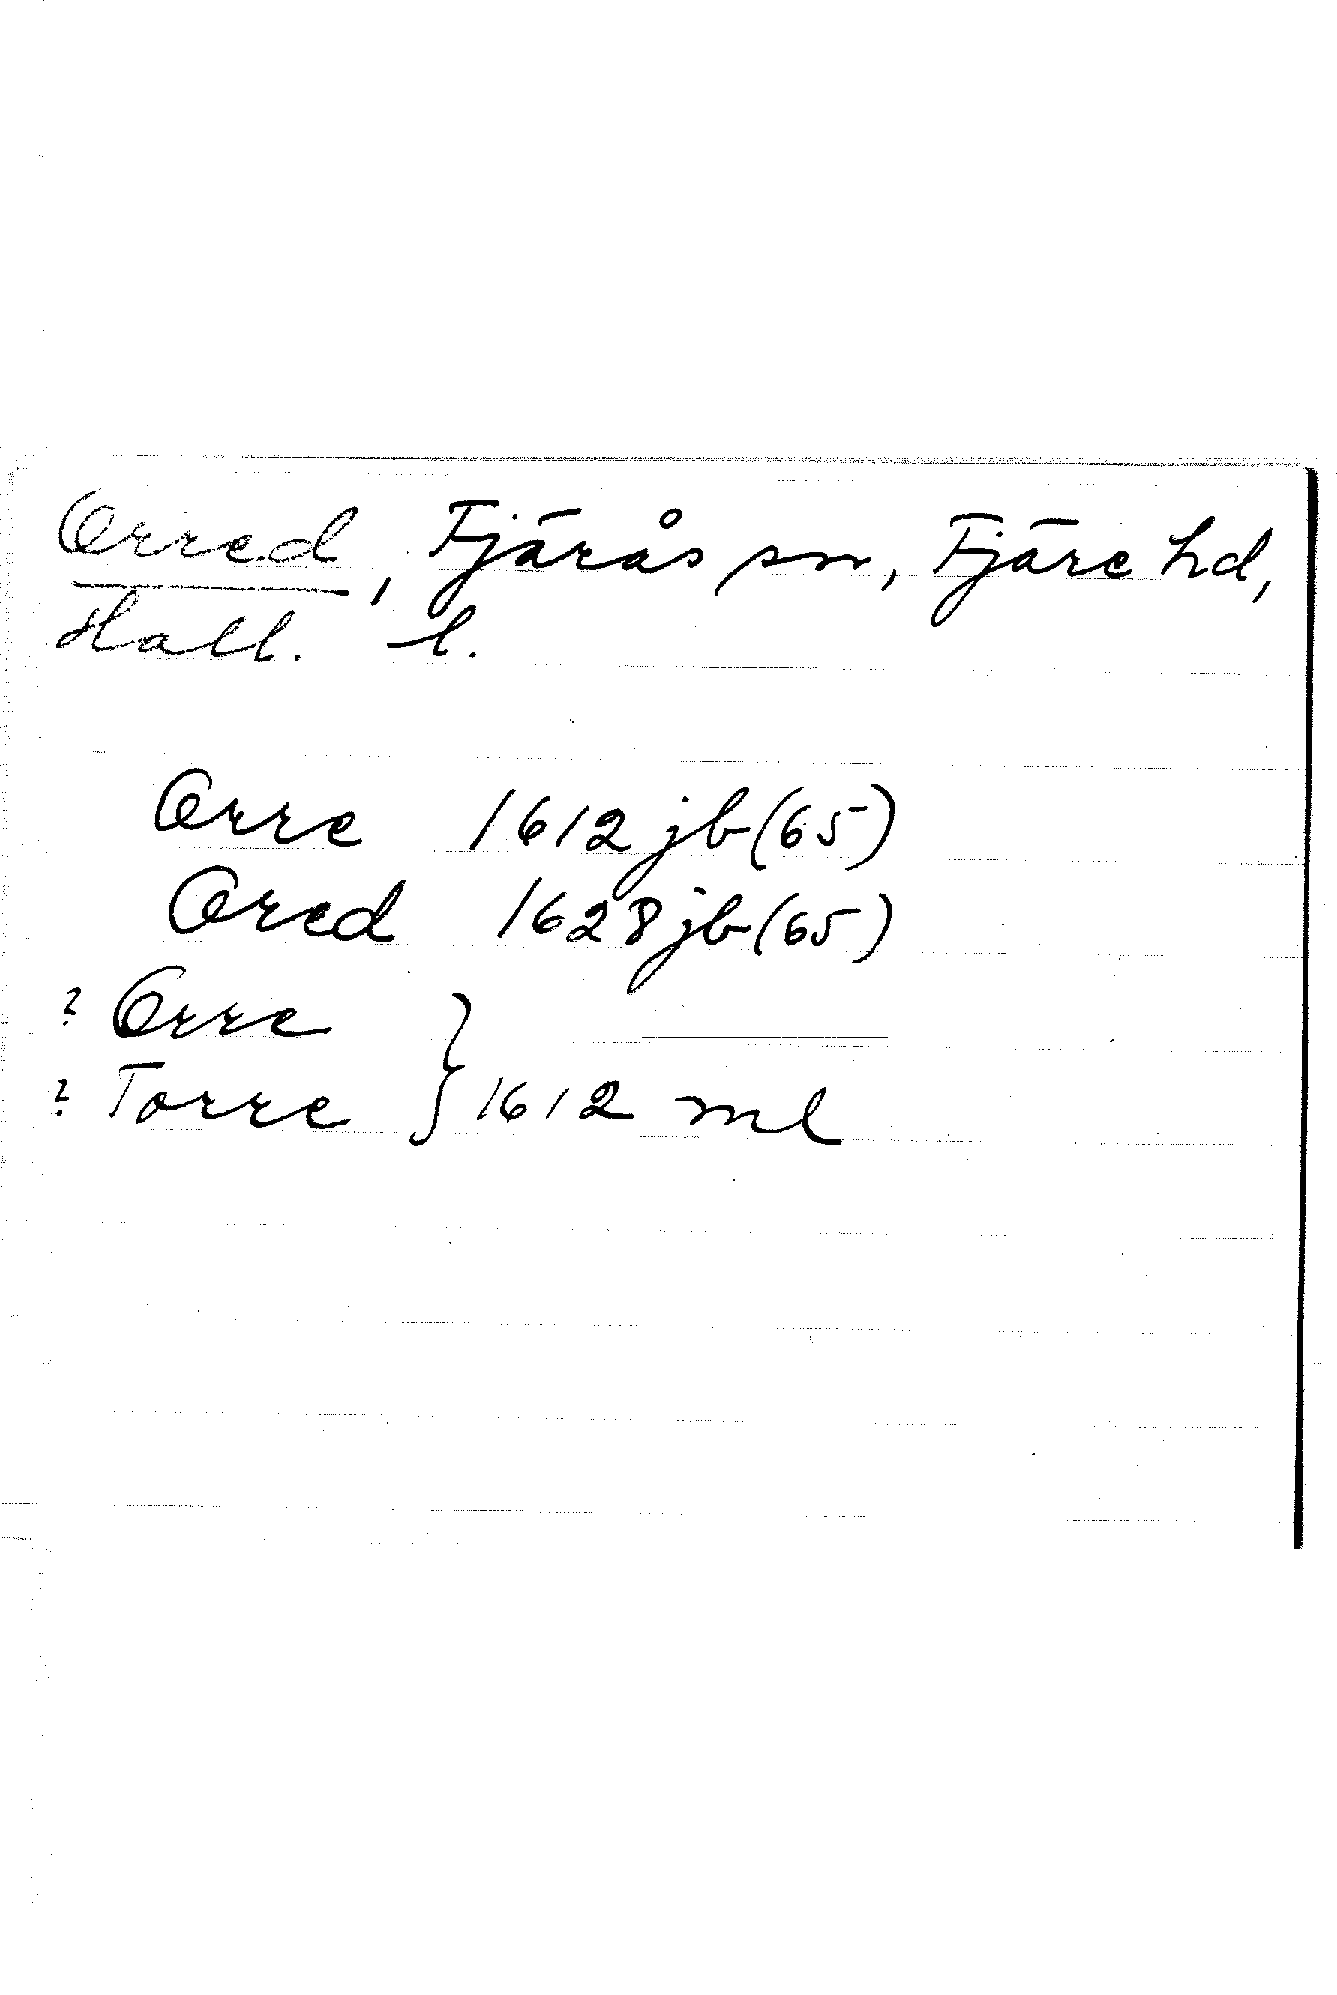 Orred, Fjärås sn, Fjäre hd,
Hall. l.
Orre 1612 jb (65)
Ored 1628 jb (65)
? Orre
? Torre } 1612 ml